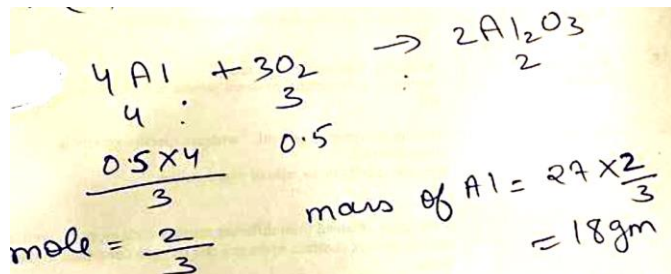 4Al + 3O₂ → 2Al₂O₃
4 : 3 : 2
0.5×4/3 0.5
mole = 2/3 mass of Al = 27 × 2/3
= 18gm